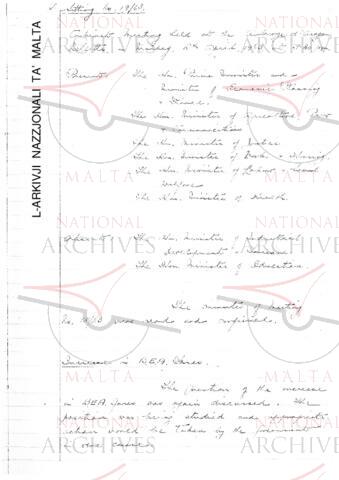 Sitting No. 19/63.
Cabinet meeting held at the Auberge d'Aragon
Valletta, March
Present: The Hon. Prime Minister and
Minister of Economic Planning
& Finance.
The Hon. Minister of Agriculture, Power
& Communications
The Hon. Minister of Justice
The Hon. Minister of Works & Housing.
The Hon. Minister of Labour & Social
Welfare
The Hon. Minister of Health.
Absent: The Hon. Minister of Industrial
Development & Tourism
The Hon. Minister of Education.
The minutes of meeting
No. 18/63 were read and confirmed.
Increase in B.E.A. Fares.
The question of the increase
in B.E.A. fares was again discussed. The
position was being studied and appropriate
action would be taken by the
in due course.
L-ARKIVJI NAZZJONALI TA' MALTA
NATIONAL
ARCHIVES